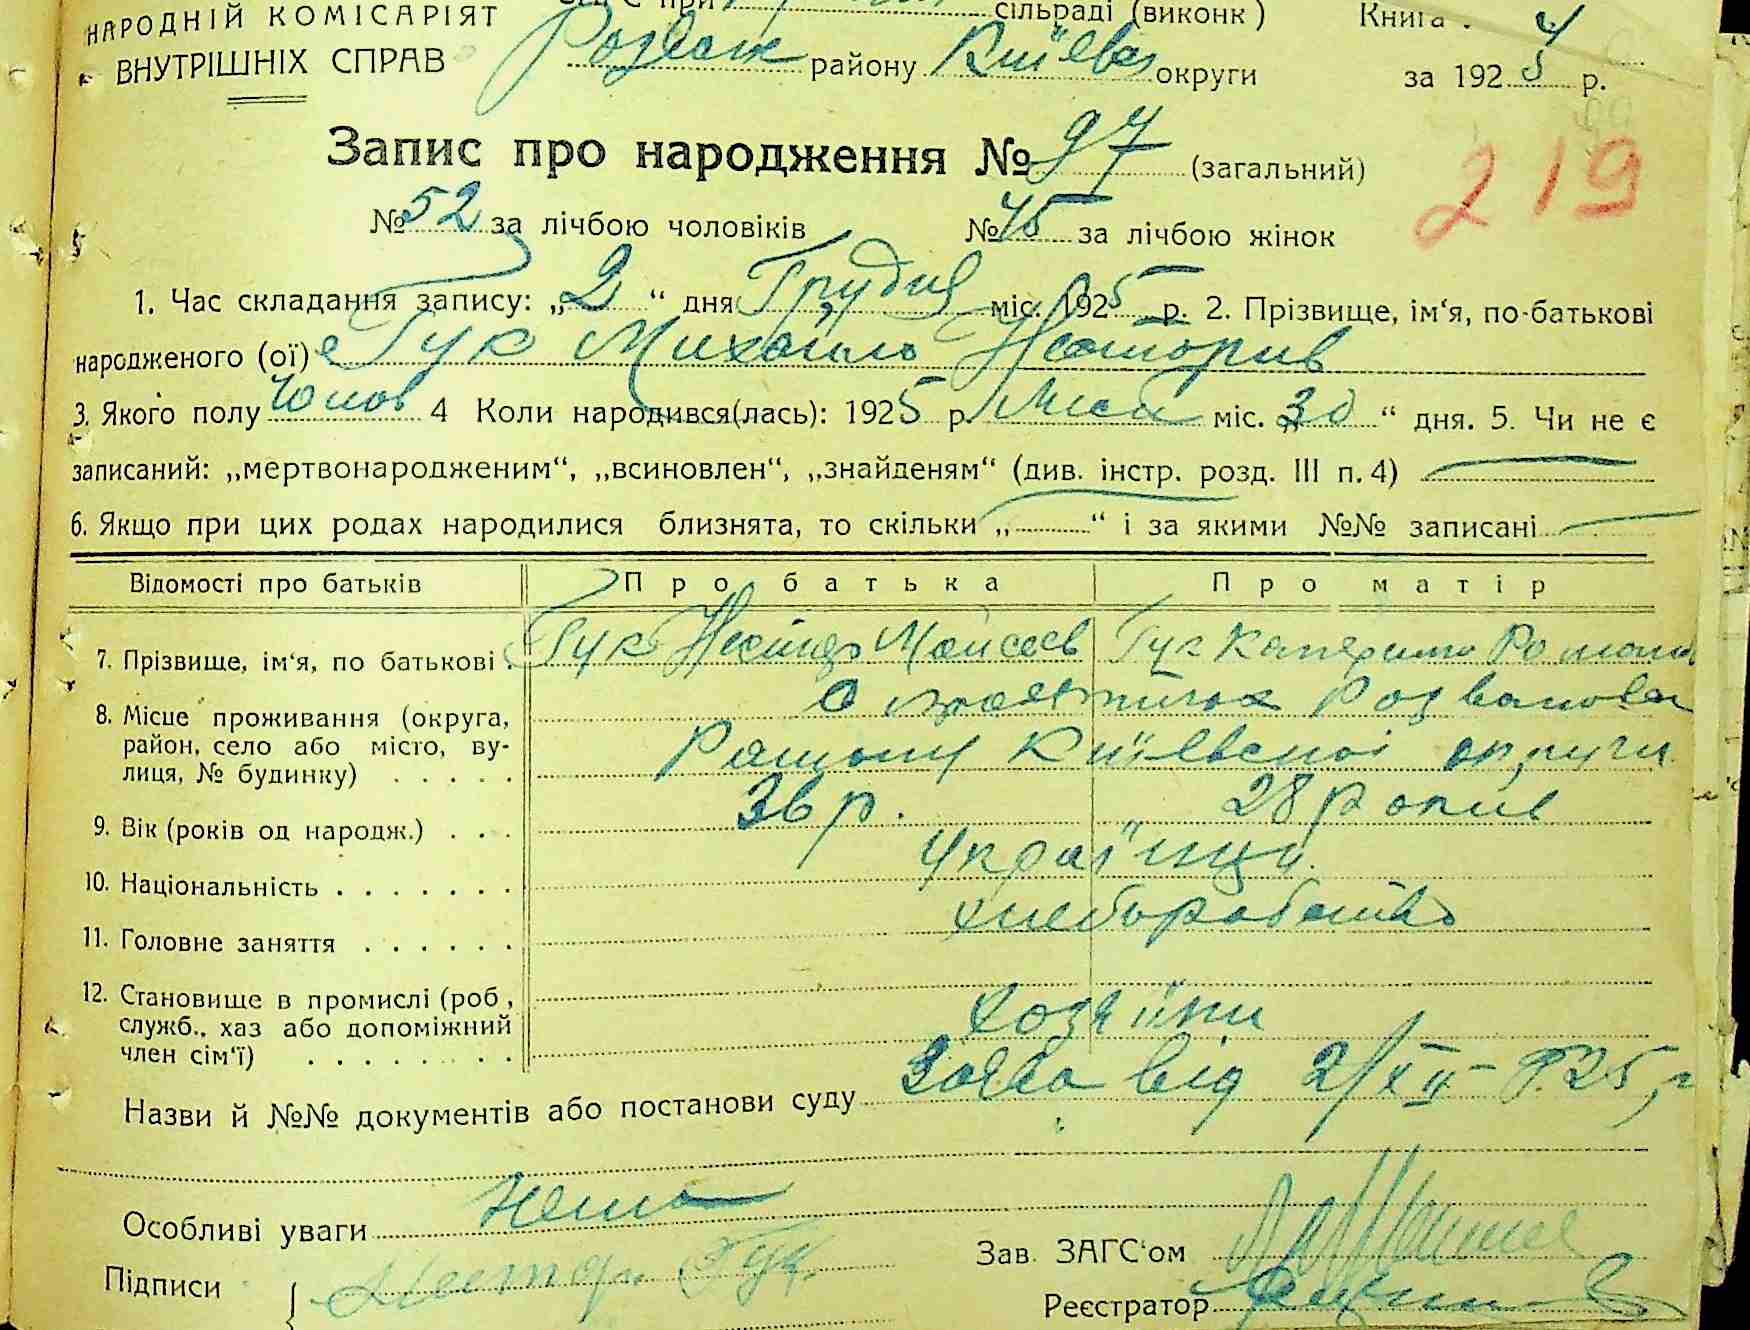 НАРОДНІЙ КОМІСАРІЯТ сільраді (виконк) Книга 4
ВНУТРІШНІХ СПРАВ Розваж району Київсь округи за 1925 р.
Запис про народження № 97 (загальний) 219
№ 52 за лічбою чоловіків № 45 за лічбою жінок
1. Час складання запису: „2“ дня Грудня міс. 1925 р. 2. Прізвище, ім‘я, по-батькові
народженого (ої) Гук Михайло Несторив
3. Якого полу 4 Коли народився(лась): 1925 р. міс. „30“ дня. 5. Чи не є
записаний: „мертвонародженим“, „всиновлен“, „знайденям“ (див. інстр. розд. III п. 4)
6. Якщо при цих родах народилися близнята, то скільки „ “ і за якими №№ записані
Відомості про батьків Про батька Про матір
7. Прізвище, ім‘я, по батькові Гук Нестор Мойсеєв Гук Катерина Роман
8. Місце проживання (округа,
район, село або місто, ву-
лиця, № будинку) Київської округи
9. Вік (років од народж.) 36 р. 28 років
10. Національність Українци
11. Головне заняття хлеборобство
12. Становище в промислі (роб,
служб., хаз або допоміжний
член сім‘ї) хозяїни
Назви й №№ документів або постанови суду Заява від 2/XII-925 р
Особливі уваги Нема
Зав. ЗАГС‘ом
Підписи Нестор Гук
Реєстратор